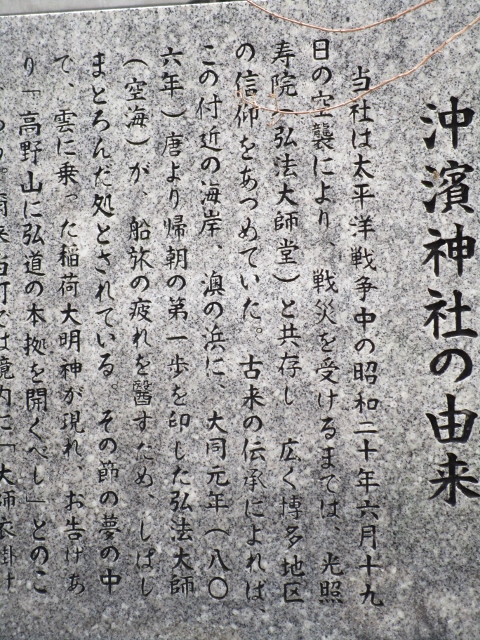 沖濱神社の由来
当社は太平洋戦争中の昭和二十年六月十九
日の空襲により、戦災を受けるまでは、光照
寿院(弘法大師堂)と共存し 広く博多地区
の信仰をあつめていた。古来の伝承によれは
この付近の海岸、 滇の浜に、大同元年(八〇
六年)唐より帰朝の第一歩を印した弘法大師
(空海)が、船旅の疲れを醫すため、しばし
まとろんだ処とされている。その節の夢の中
で、雲に乗った稲荷大明神が現れ、お告げあ
り「高野山に弘道の本拠を開くべし」とのこ
境内に「大師衣掛け